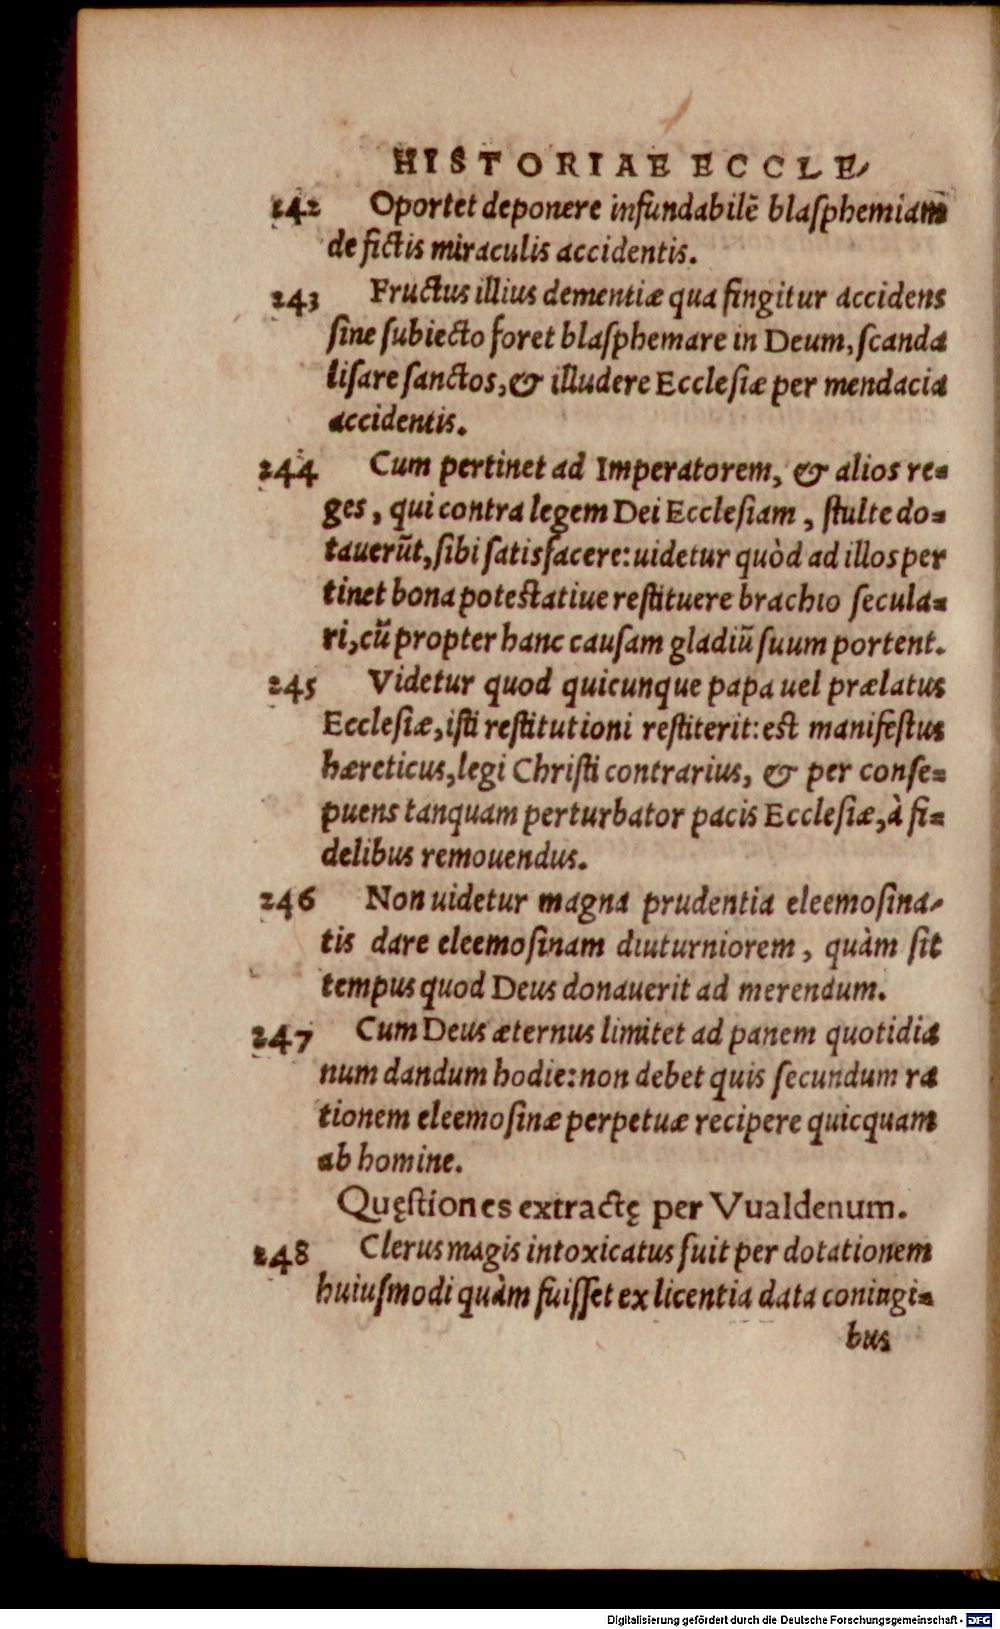 HISTORIAE ECCLE-
242 Oportet deponere infundabilē blasphemiam
de fictis miraculis accidentis.
243 Fructus illius dementiæ qua fingitur accidens
sine subiecto foret blasphemare in Deum, scanda
lisare sanctos, & illudere Ecclesiæ per mendacia
accidentis.
244 Cum pertinet ad Imperatorem, & alios re=
ges, qui contra legem Dei Ecclesiam, stulte do=
tauerūt, sibi satisfacere: uidetur quòd ad illos per
tinet bona potestatiue restituere brachio secula=
ri, cū propter hanc causam gladiū suum portent.
245 Videtur quod quicunque papa uel prælatus
Ecclesiæ, isti restitutioni restiterit: est manifestus
hæreticus, legi Christi contrarius, & per conse=
puens tanquam perturbator pacis Ecclesiæ, à fi=
delibus remouendus.
246 Non uidetur magna prudentia eleemosina-
tis dare eleemosinam diuturniorem, quàm sit
tempus quod Deus donauerit ad merendum.
247 Cum Deus æternus limitet ad panem quotidia
num dandum hodie: non debet quis secundum ra
tionem eleemosinæ perpetuæ recipere quicquam
ab homine.
Quęstiones extractę per Vualdenum.
248 Clerus magis intoxicatus fuit per dotationem
huiusmodi quàm fuisset ex licentia data coniugi=
bus
Digitalisierung gefördert durch die Deutsche Forschungsgemeinschaft - DFG